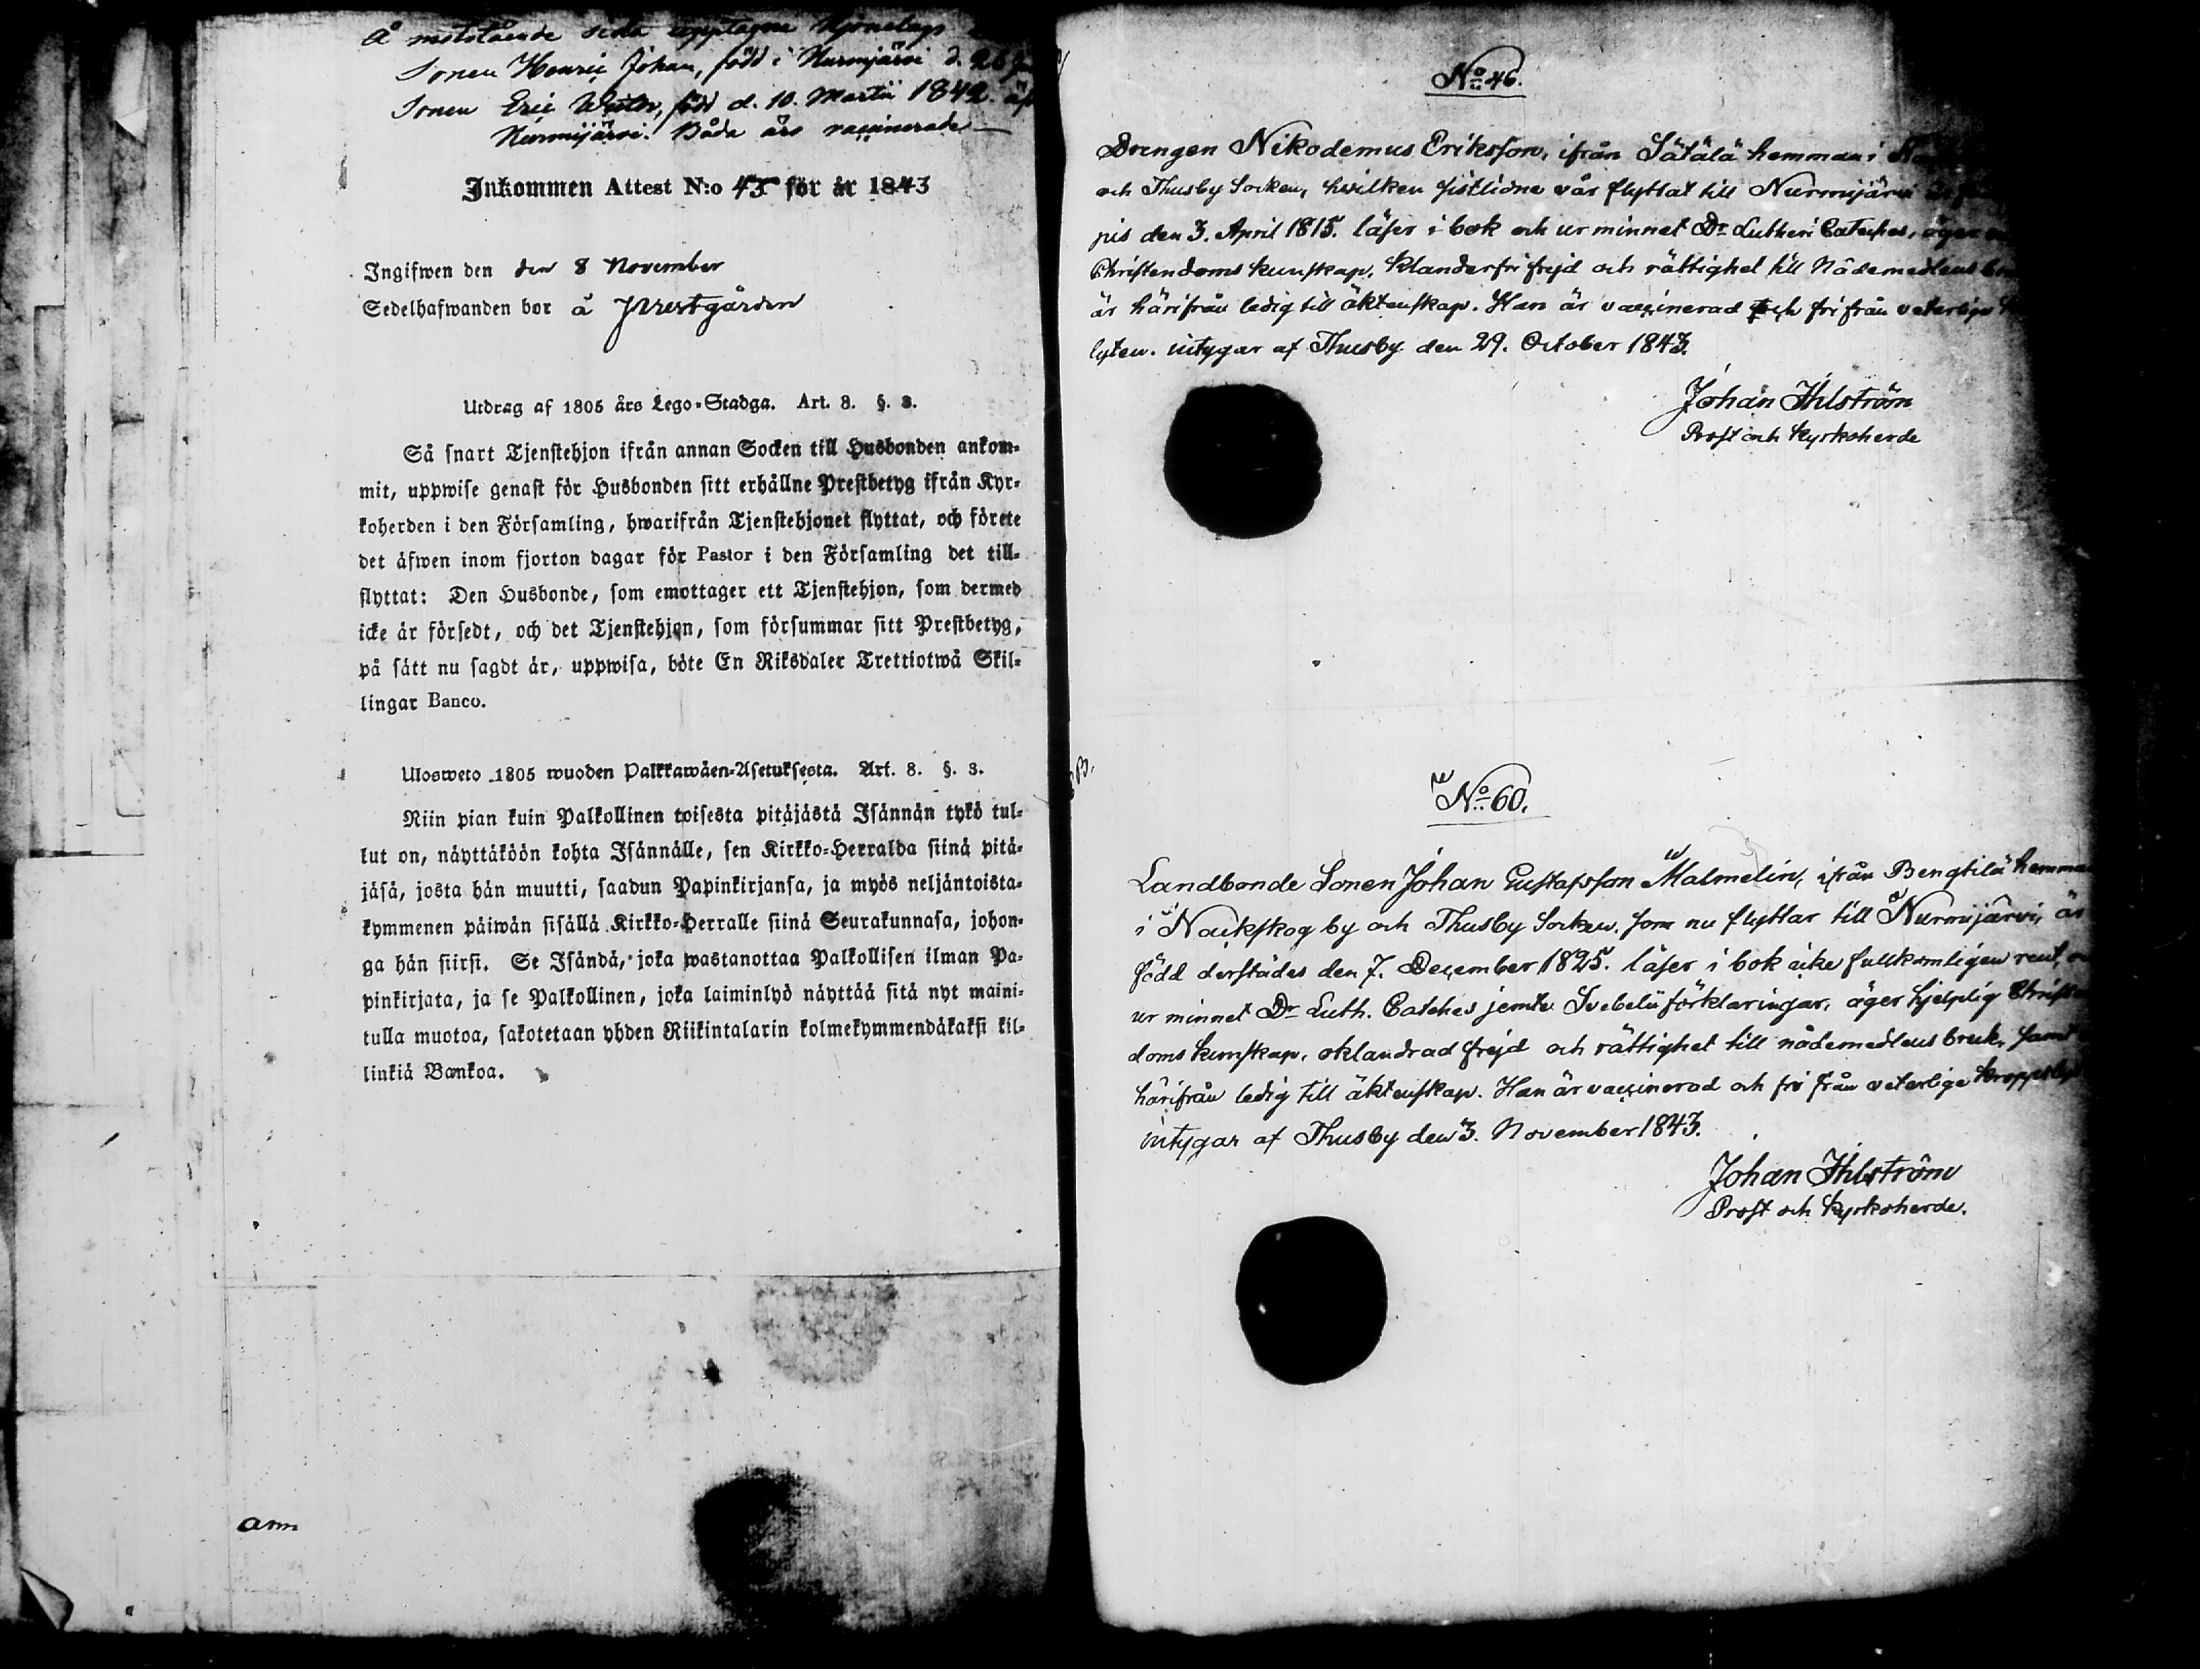 Å motstående sida upptagne Hjonelags
Sonen Henric Johan, född i Nurmijärvi d. 26
Sonen Eric Wester, född d. 10. Martii 1842.
Nurmijärvi. Båda äro vaccinerade —
Inkommen Attest N:o 45 för år 1843
Ingifwen den den 8 November
Sedelhafwanden bor å Prestgården
Utdrag af 1805 års Lego-Stadga. Art. 8. §. 3.
Så snart Tjenstehjon ifrån annan Socken till Husbonden ankom-
mit, uppwise genast för Husbonden sitt erhållne Prestbetyg ifrån Kyr-
koherden i den Församling, hwarifrån Tjenstehjonet flyttat, och förete
det äfwen inom fjorton dagar för Pastor i den Församling det till-
flyttat: Den Husbonde, som emottager ett Tjenstehjon, som dermed
icke är försedt, och det Tjenstehjon, som försummar sitt Prestbetyg,
på sätt nu sagdt är, uppwisa, böte En Riksdaler Trettiotwå Skil-
lingar Banco.
Ulosweto 1805 wuoden Palkkawäen-Asetuksesta. Art. 8. §. 3.
Niin pian kuin Palkollinen toisesta pitäjästä Isännän tykö tul-
lut on, näyttäköön kohta Isännälle, sen Kirkko-Herralda siinä pitä-
jäsä, josta hän muutti, saadun Papinkirjansa, ja myös neljäntoista-
kymmenen päiwän sisällä Kirkko-Herralle siinä Seurakunnasa, johon-
ga hän siirsi. Se Isändä, joka wastanottaa Palkollisen ilman Pa-
pinkirjata, ja se Palkollinen, joka laiminlyö näyttää sitä nyt maini-
tulla muotoa, sakotetaan yhden Riikintalarin kolmekymmendäkaksi kil-
linkiä Bankoa.
No 46.
Drengen Nikodemus Eriksson, ifrån Sätälä hemman i
och Thusby Socken, hvilken sistlidne vår flyttat till Nurmijärvi
pis den 3. April 1815. läser i bok och ur minnet Dr Lutheri Cateches, äger
Christendoms kunskap, klanderfri frejd och rättighet till Nådemedlens
är härifrån ledig till äktenskap. Han är vaccinerad och fri från veterlige
lyten. intygar af Thusby den 29. October 1843.
Johan Ihlström
Prost och Kyrkoherde
No 60.
Landbonde Sonen Johan Gustafsson Malmelin, ifrån Bengtilä hemman
i Nackskog by och Thusby Socken, som nu flyttar till Nurmijärvi, är
född derstädes den 7. December 1825. läser i bok icke fullkomligen rent,
ur minnet Dr Luth. Cateches jemte Svebelii förklaringar, äger hjelplig
doms kunskap, oklandrad frejd och rättighet till nådemedlens bruk, samt
härifrån ledig till äktenskap. Han är vaccinerad och fri från veterlige
intygar af Thusby den 3. November 1843.
Johan Ihlström
Prost och Kyrkoherde.